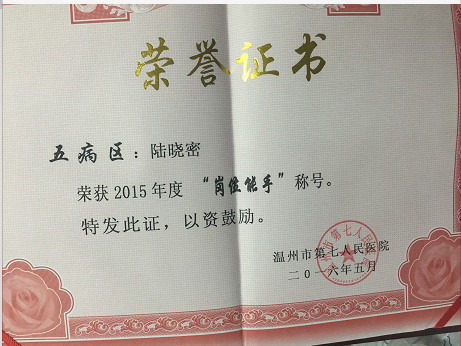 荣誉证书
五病区：陆晓密
荣获2015年度“岗位能手”称号。
特发此证，以资鼓励。
温州市第七人民医院
二〇一六年五月